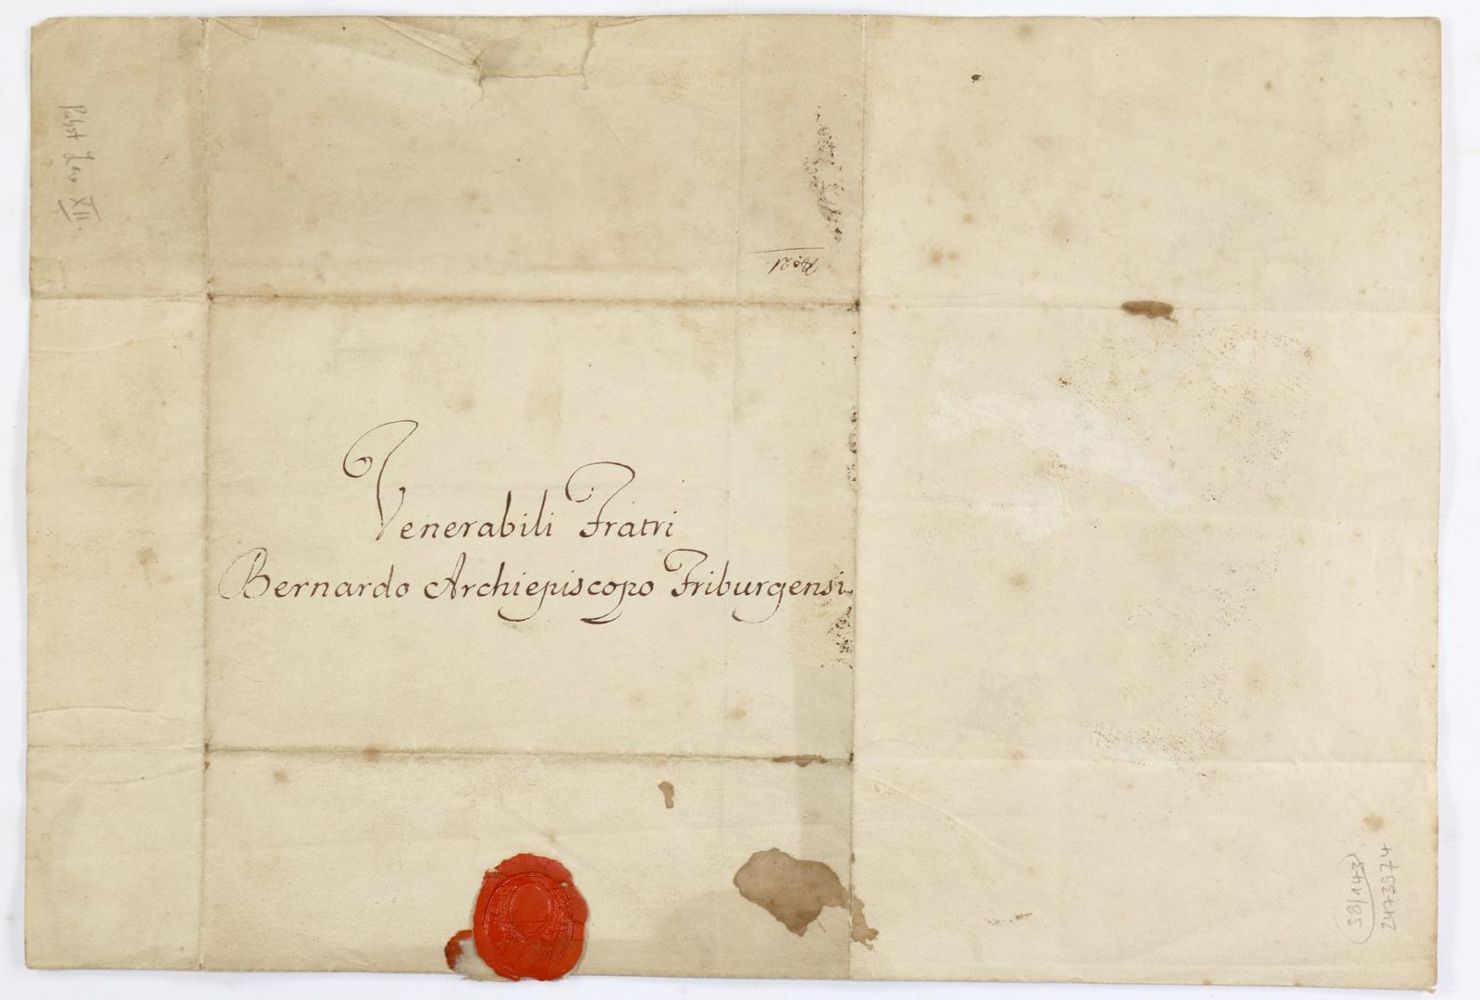 Pabst Leo XII.
Venerabili Fratri
Bernardo Archiepiscopo Friburgensi
38/143
2473574